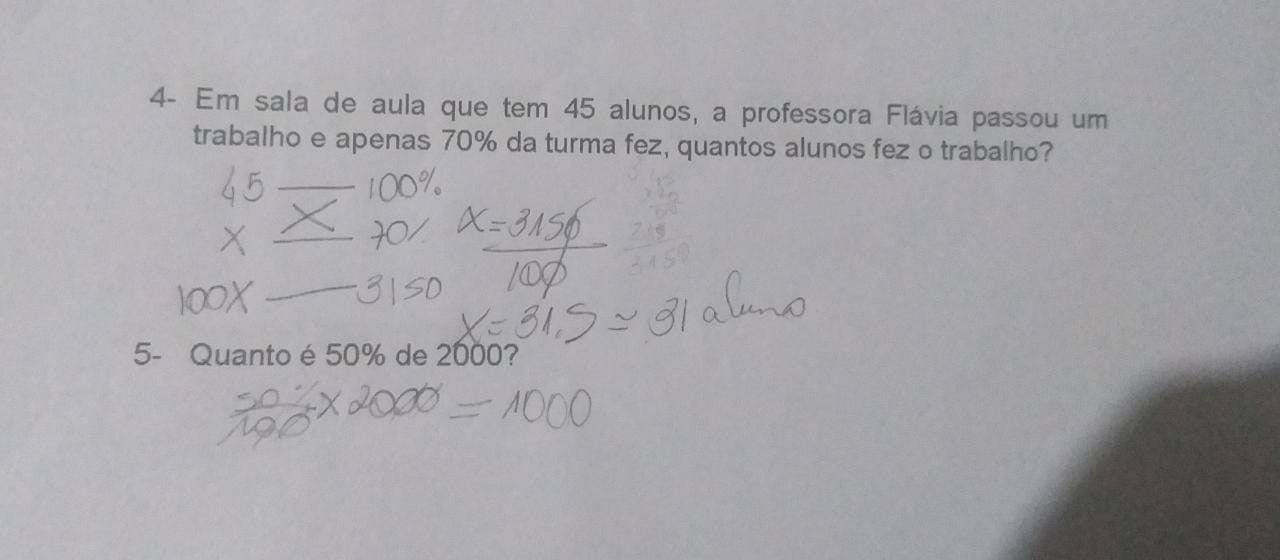 4- Em sala de aula que tem 45 alunos, a professora Flávia passou um
trabalho e apenas 70% da turma fez, quantos alunos fez o trabalho?
45 — 100%
X — 70%
X
100X — 3150
X = 3150
100
X = 31,5 ≃ 31 aluno
3150
5- Quanto é 50% de 2000?
50%
100
X 2000 = 1000